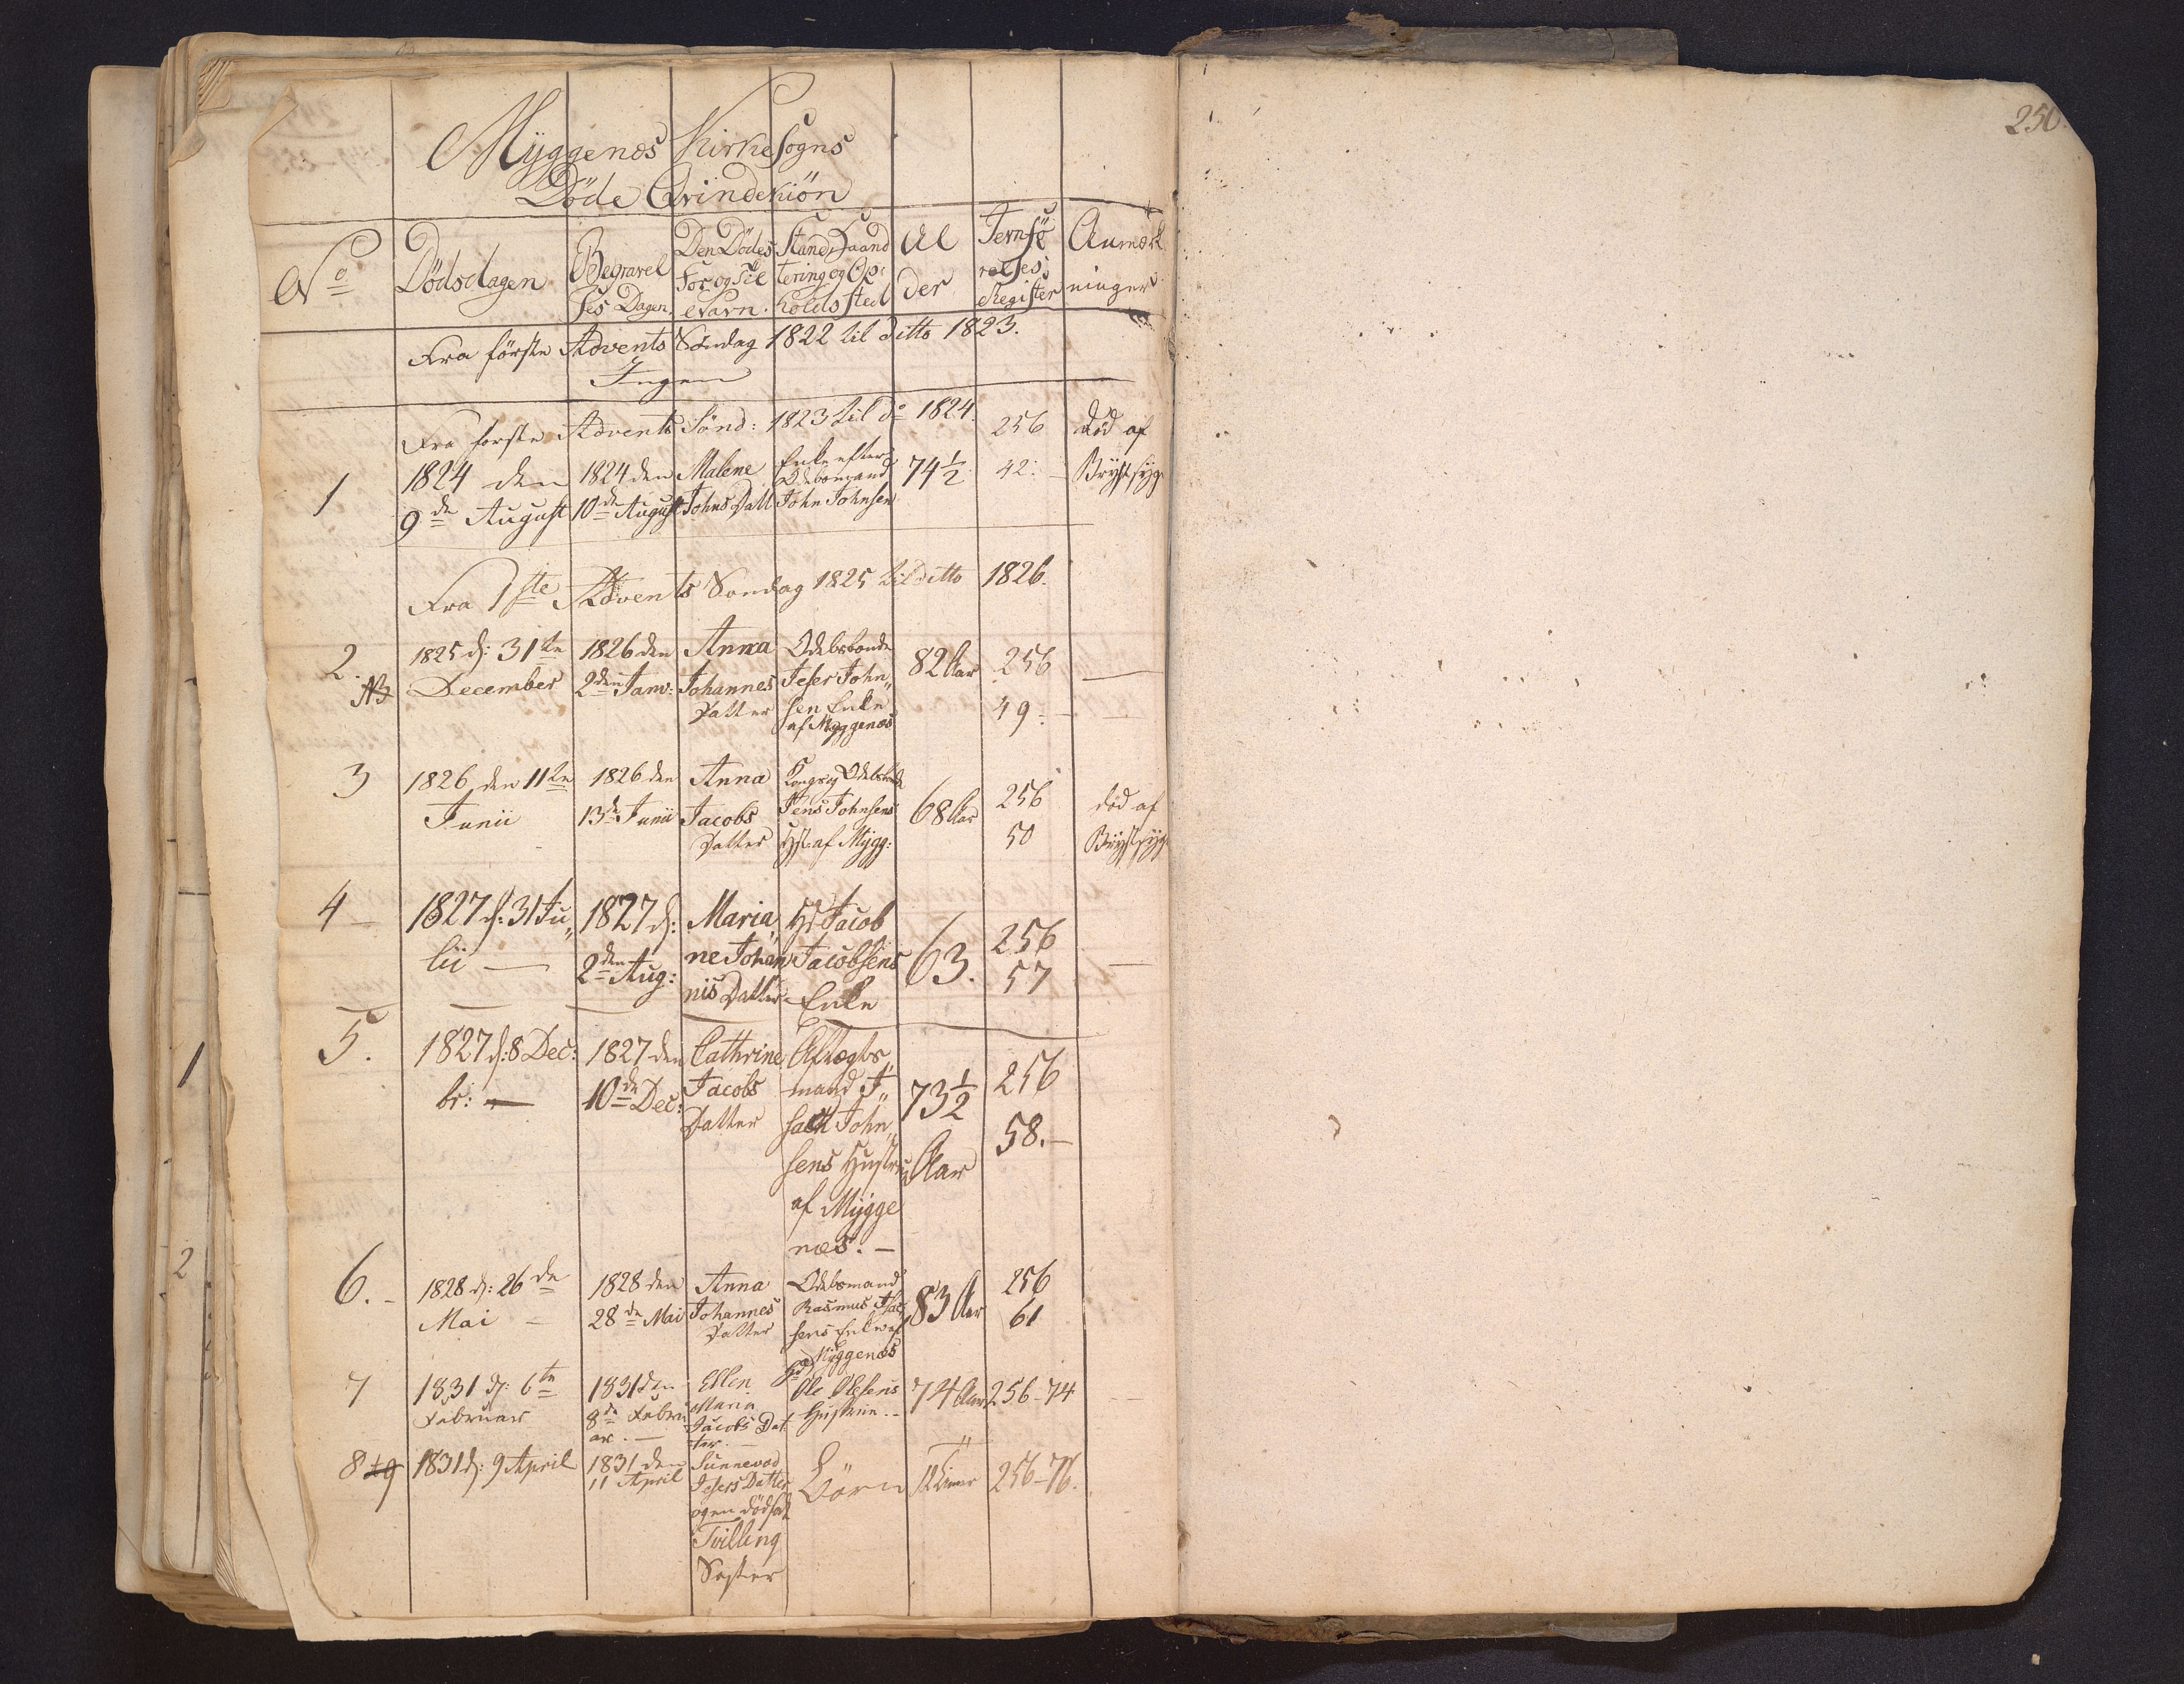 250.
Myggenæs Kirke Sogns
Döde Qvindekiön
No Dödsdagen Begravel ses Dagen. Den Dödes For og Til Navn. Stand, Haand tering og Op= holds sted Al der Jevnfö relses Register Anmærk ninger
Fra förste Advents Söndag 1822 til ditto 1823.
Ingen
Fra forste Advents Sönd: 1823 til do 1824.
1 1824 den 9de August 1824 den 10de August Malene Johns Datt Enke efter Odelsmand John Johnsen 74 1/2 256 42: död af Brystsyge
Fra 1ste Advents Sondag 1825 til ditto 1826.
2. NB 1825 d: 31te December 1826 den 2den Janv: Anna Johannes Datter Odelsbonde Joser John„ sen Enke af Myggenæs 82 Aar 256 49: —
3 1826 den 11te Junii 1826 den 13de Junii Anna Jacobs Datter Kong og Odelsbonde Jens Johnsens Hst: af Mygg: 68 Aar 256 50 död af Brystsyge
4 1827 d: 31 Ju„ lii — 1827 d: 2den Aug: Maria„ ne Johan nis Datter Hs Jacob Jacobsens Enke 63. 256 57 —
5. 1827 d: 8 Dec: br: — 1827 den 10de Dec: Cathrine Jacobs Datter Aftægts„ mand I„ sach John„ sens Hustru af Mygge næs. — 73 1/2 Aar 256 58. —
6. 1828 d: 26de Mai 1828 den 28de Mai Anna Johannes Datter Odelsmand Rasmus Isac sens Enke af Myggenæs 83 Aar 256 61
7 1831 d: 6te Februar 1831 den 8de Febru ar. — Ellen Maria Jacobs Dat ter. — Ole Olesens Hustrue. 74 Aar 256-74
8 + 9 1831 d: 9 April 1831 den 11 April Sunnevod Josers Datter og en dödfödt Tvilling Söster Börn 12 Timer 256-76.
1
2